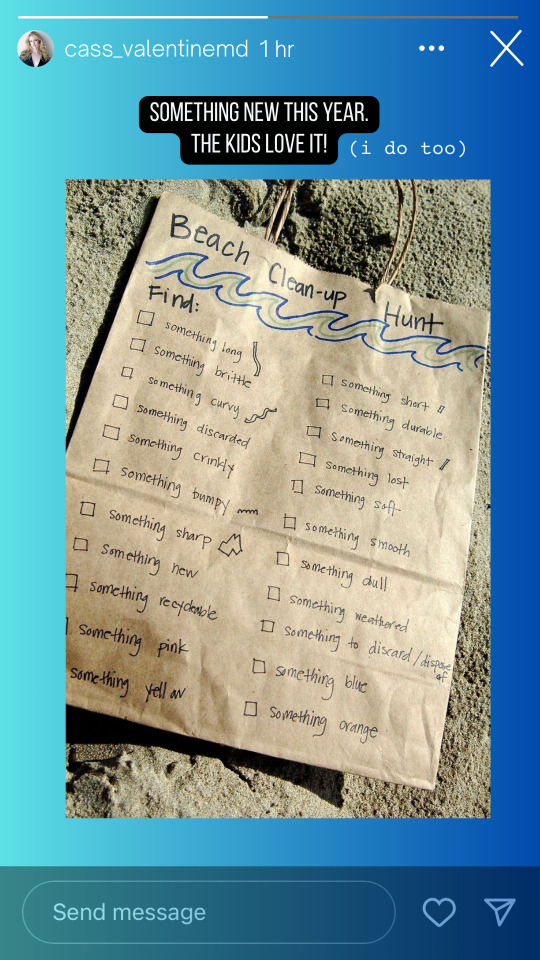 cass_valentinemd 1 hr
SOMETHING NEW THIS YEAR.
THE KIDS LOVE IT! (i do too)
Beach Clean-up Hunt
Find:
something long
something brittle
something curvy
something discarded
something crinkly
something bumpy
something sharp
something new
something recycleable
something pink
something yellow
something short
something durable
something straight
something lost
something soft
something smooth
something dull
something weathered
something to discard/dispose
of
something blue
something orange
Send message